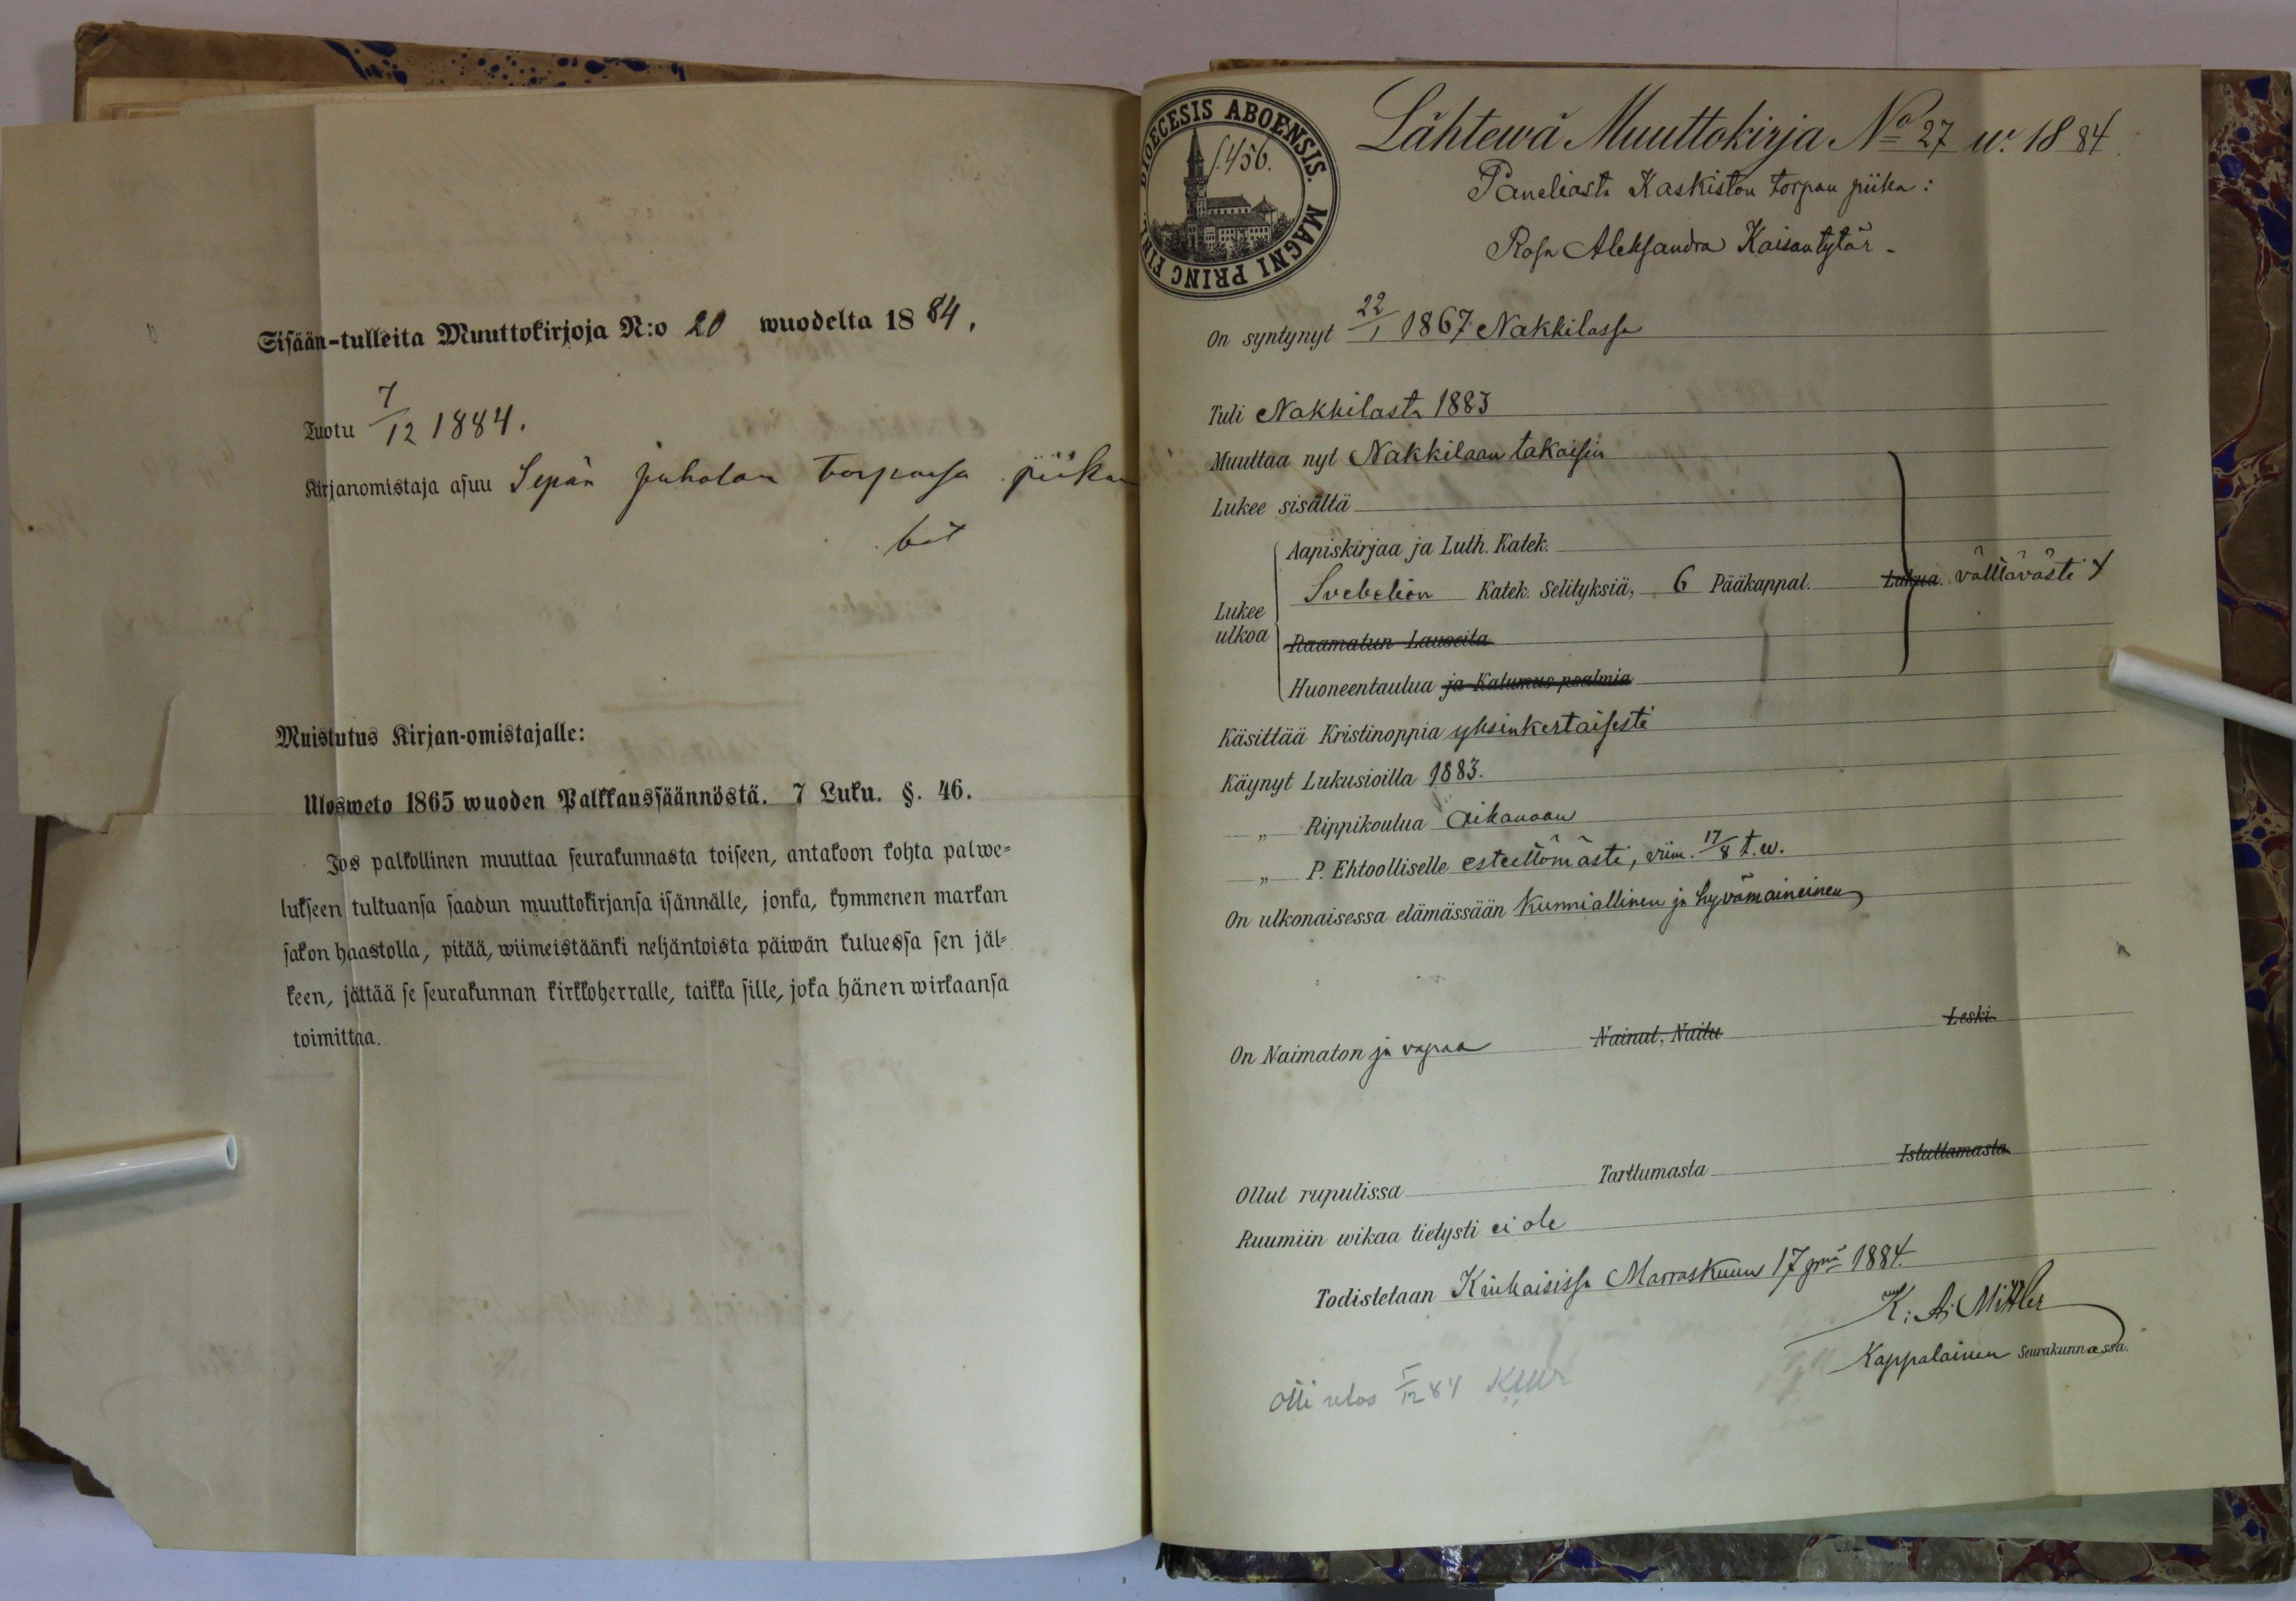 Sisään-tulleita Muuttokirjoja N:o 20 wuodelta 1884.
Tuotu 7/12 1884.
Kirjanomistaja asuu Sepän juholan torpassa piikan
Muistutus Kirjan-omistajalle:
Ulosweto 1865 wuoden Palkkaussäännöstä. 7 Luku. §. 46.
Jos palkollinen muuttaa seurakunnasta toiseen, antakoon kohta palwe-
lukseen tultuansa saadun muuttokirjansa isännälle, jonka, kymmenen markan
sakon haastolla, pitää, wiimeistäänki neljäntoista päiwän kuluessa sen jäl-
keen, jättää se seurakunnan kirkkoherralle, taikka sille, joka hänen wirkaansa
toimittaa.
DIOECESIS ABOENSIS. MAGNI PRINC FINL
S. 456.
Lähtewä Muuttokirja No 27 w. 1884.
Paneliasta Kaskiston torpan piika:
Rosa Aleksandra Kaisantytär -
On syntynyt 22/1 1867 Nakkilassa
Tuli Nakkilasta 1883
Muuttaa nyt Nakkilaan takaisin
Lukee sisältä
Aapiskirjaa ja Luth. Katek.
Svebelion Katek. Selityksiä, 6 Pääkappal. Lukua. välttävästi
Lukee
ulkoa
Raamatun Lauseita
Huoneentaulua ja Katumus psalmia
Käsittää Kristinoppia yksinkertaisesti
Käynyt Lukusioilla 1883.
„ Rippikoulua Aikanaan
„ P. Ehtoolliselle esteettömästi, viim. 17/8 t.w.
On ulkonaisessa elämässään Kunniallinen ja hyvämaineinen
On Naimaton ja vapaa Nainut, Naitu Leski
Ollut rupulissa Tarttumasta Istuttamasta
Ruumiin wikaa tietysti ei ole
Todistetaan Kiukaisissa Marraskuun 17 pnä 1884.
Kappalainen Seurakunnassa.
Otti ulos 5/12 84